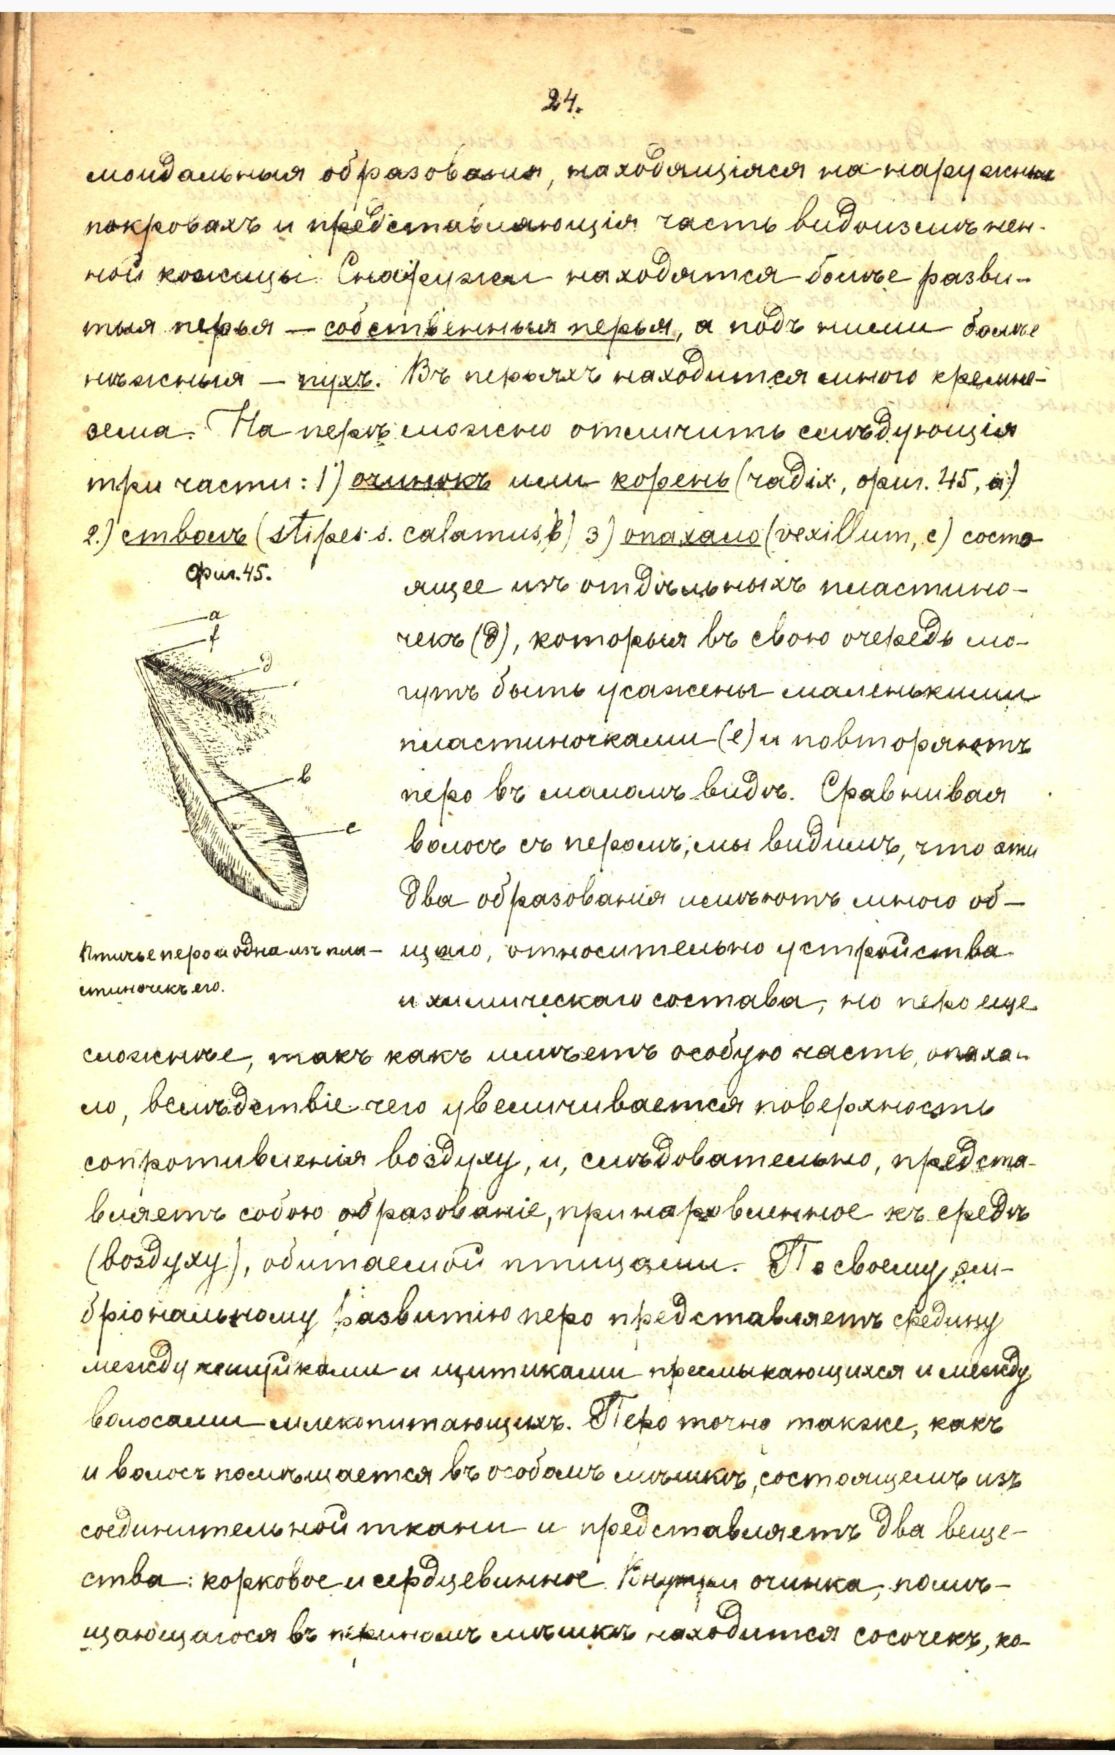 24.
моидальныя образованія, находящіяся на наружных
покровахъ и представляющія часть видоизмѣнен-
ной кожицы. Снаружи находятся болѣе разви-
тыя перья — собственныя перья, а подъ ними болѣе
нѣжныя — пухъ. Въ перьяхъ находится много кремне-
зема. На перѣ можно отличить слѣдующія
три части: 1) очинокъ или корень (radix, фиг. 45, a)
2.) стволъ (stipes s. calamus, b) 3) опахало (vexillum, c) состо
фиг. 45.
a
f
d
b
c
Птичье перо и одна изъ пла-
стиночекъ его.
ящее изъ отдѣльныхъ пластино-
чекъ (d), которыя въ свою очередь мо-
гутъ быть усажены маленькими
пластиночками (e) и повторяютъ
перо въ маломъ видѣ. Сравнивая
волосъ съ перомъ, мы видимъ, что эти
два образованія имѣютъ много об-
щаго, относительно устройства
и химическаго состава, но перо еще
сложнѣе, такъ какъ имѣетъ особую часть, опаха-
ло, вслѣдствіе чего увеличивается поверхность
сопротивленія воздуху, и, слѣдовательно, предста-
вляетъ собою образованіе, приноровленное къ средѣ
(воздуху), обитаемой птицами. По своему эм-
бріональному развитію перо представляетъ средину
между чешуйками и щитиками пресмыкающихся и между
волосами млекопитающихъ. Перо точно также, какъ
и волосъ помѣщается въ особомъ мѣшкѣ, состоящемъ изъ
соединительной ткани и представляетъ два веще-
ства: корковое и сердцевинное. Кнутри очинка, помѣ-
щающагося въ перьномъ мѣшкѣ находится сосочекъ, ко-